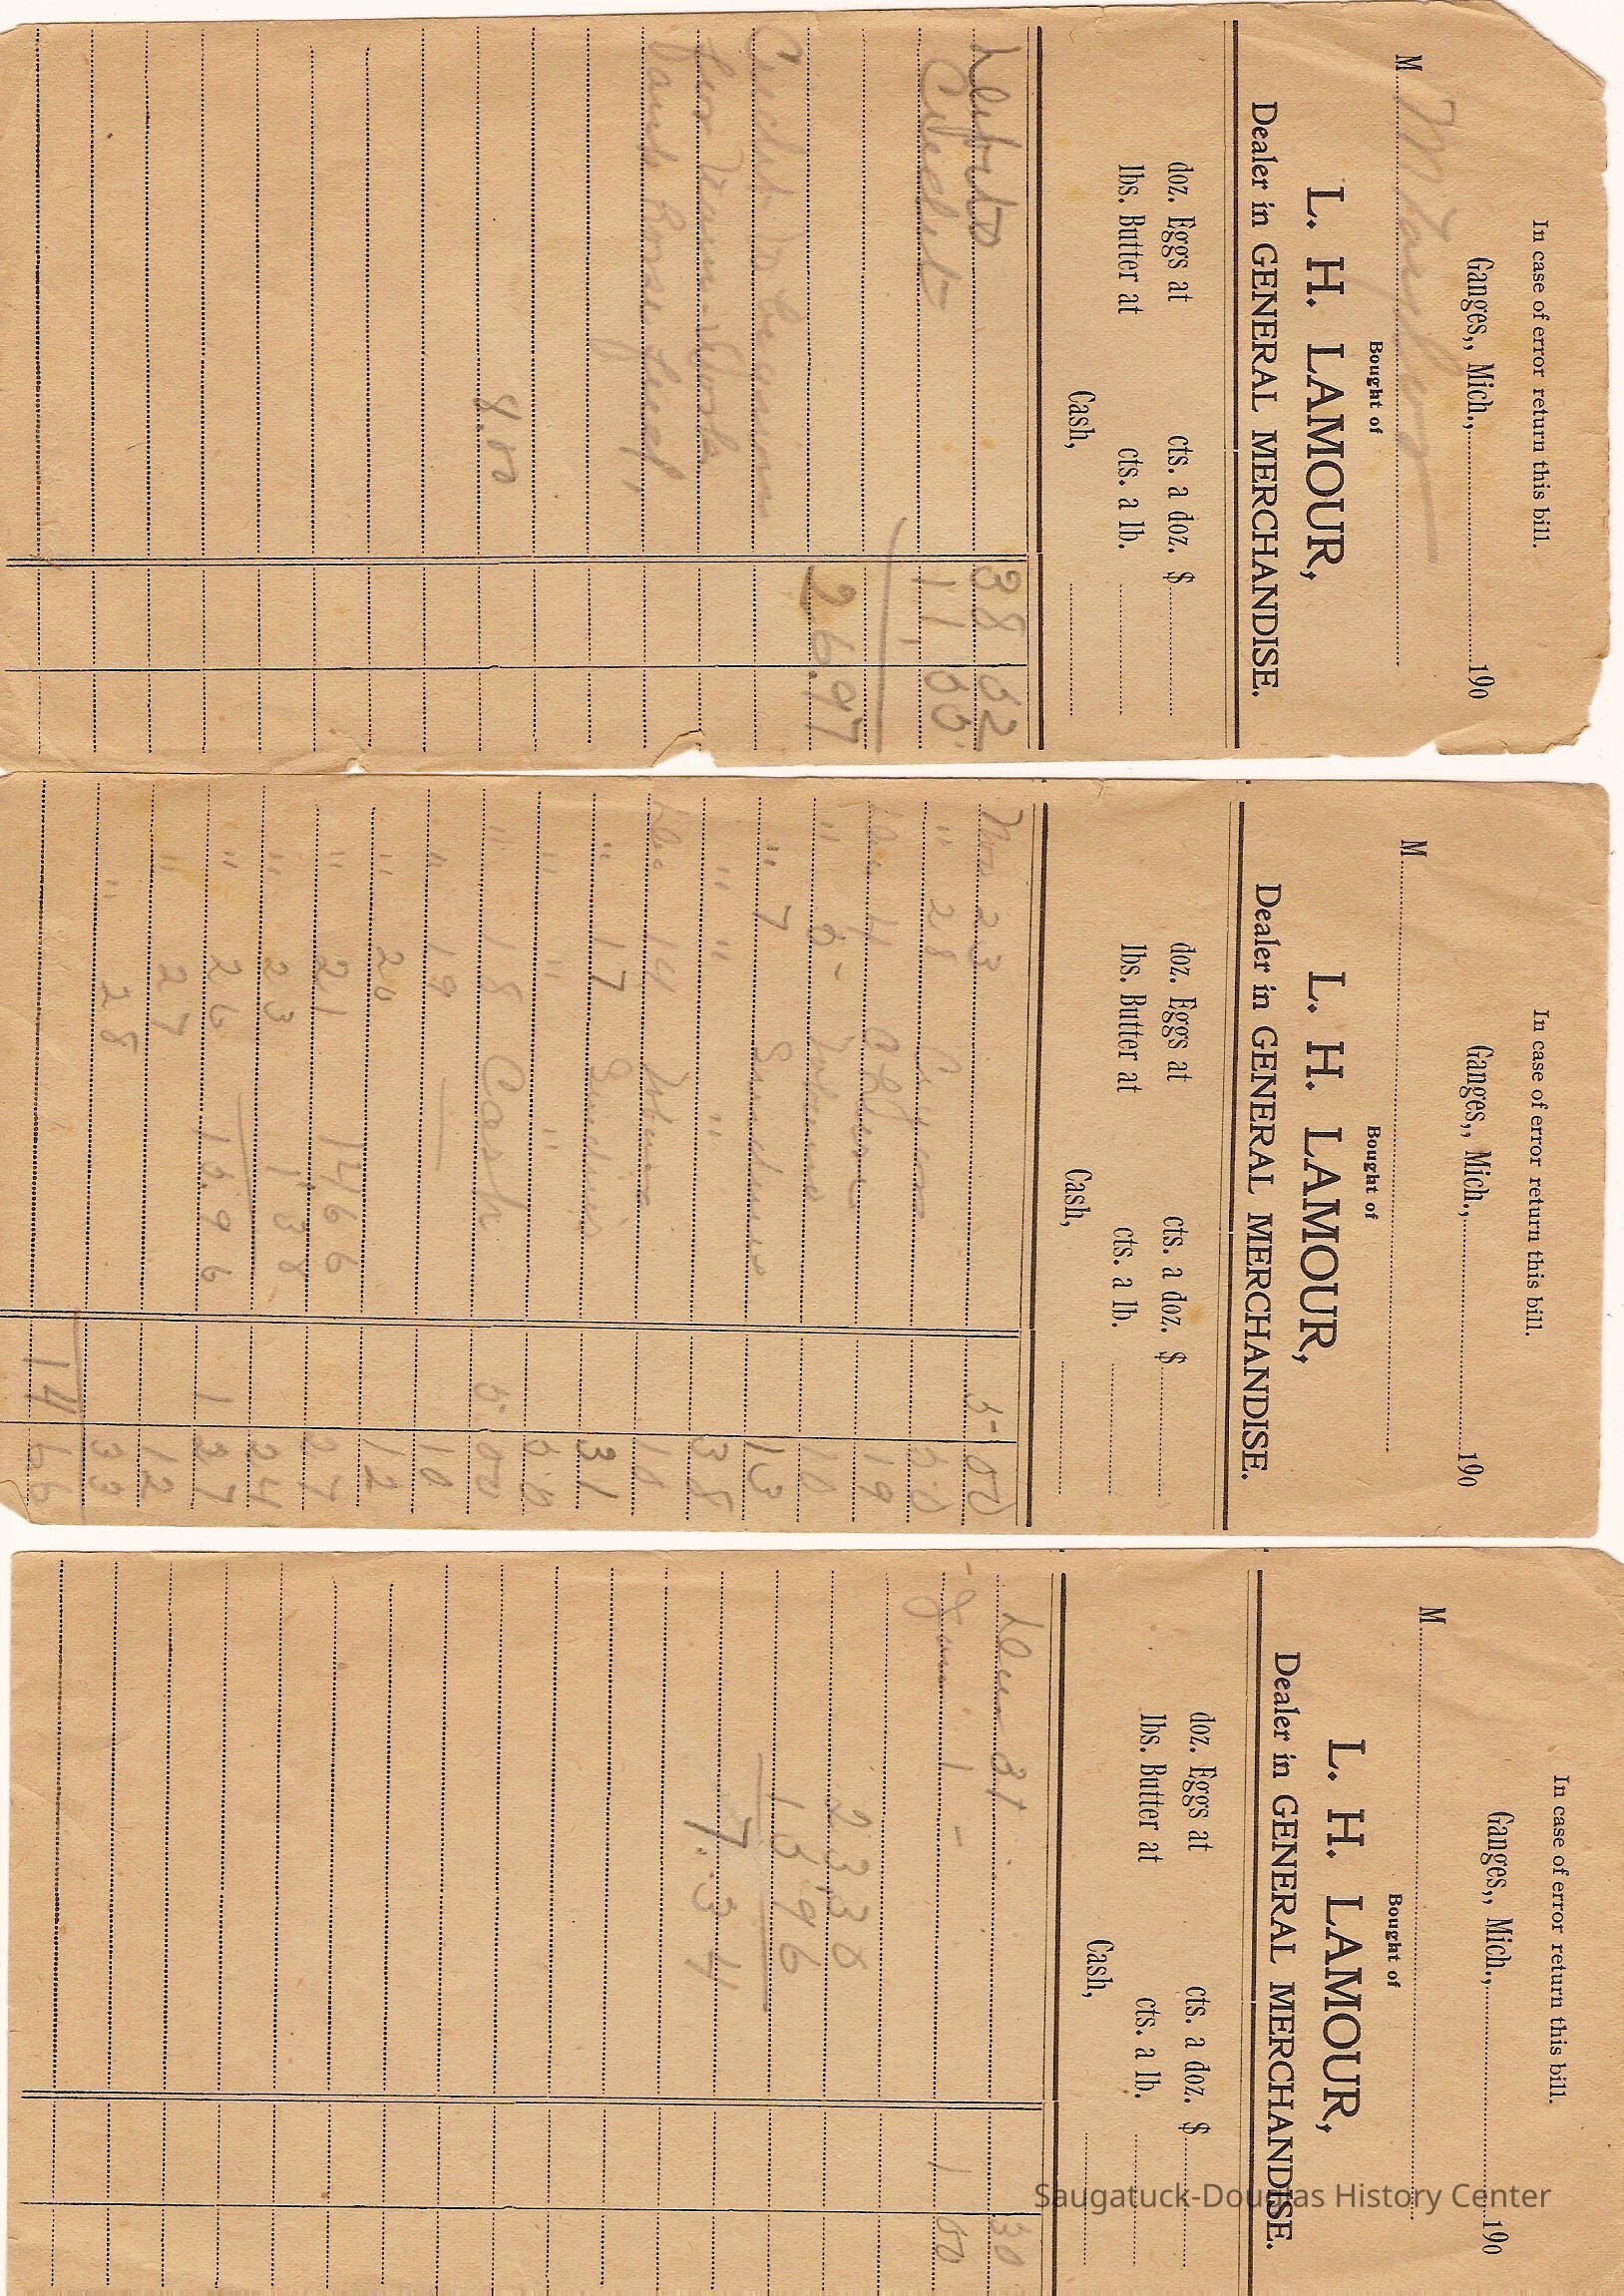 In case of error return this bill.
Ganges,, Mich., 190
M
Bought of
L. H. LAMOUR,
Dealer in GENERAL MERCHANDISE.
doz. Eggs at cts. a doz. $
lbs. Butter at cts. a lb.
Cash,
Debits 38 02
Credit 11.00
26.97
Credit to be given
for Team Work
8.00
In case of error return this bill.
Ganges,, Mich., 190
M
Bought of
L. H. LAMOUR,
Dealer in GENERAL MERCHANDISE.
doz. Eggs at cts. a doz. $
lbs. Butter at cts. a lb.
Cash,
Nov 23 5 00
" 28
Dec 4 19
" 5
" 7 Sundries 13
" " " 38
Dec 14
" 17 Sundries 31
" " "
" 18 Cash 5.00
" 19 10
" 20 12
" 21 1466
" 23 24
" 26 1 27
" 27 12
" 28 33
14 66
In case of error return this bill.
Ganges,, Mich., 190
M
Bought of
L. H. LAMOUR,
Dealer in GENERAL MERCHANDISE.
doz. Eggs at cts. a doz. $
lbs. Butter at cts. a lb.
Cash,
Dec 31 30
Jan 1 - 1 00
7.34
Saugatuck-Douglas History Center